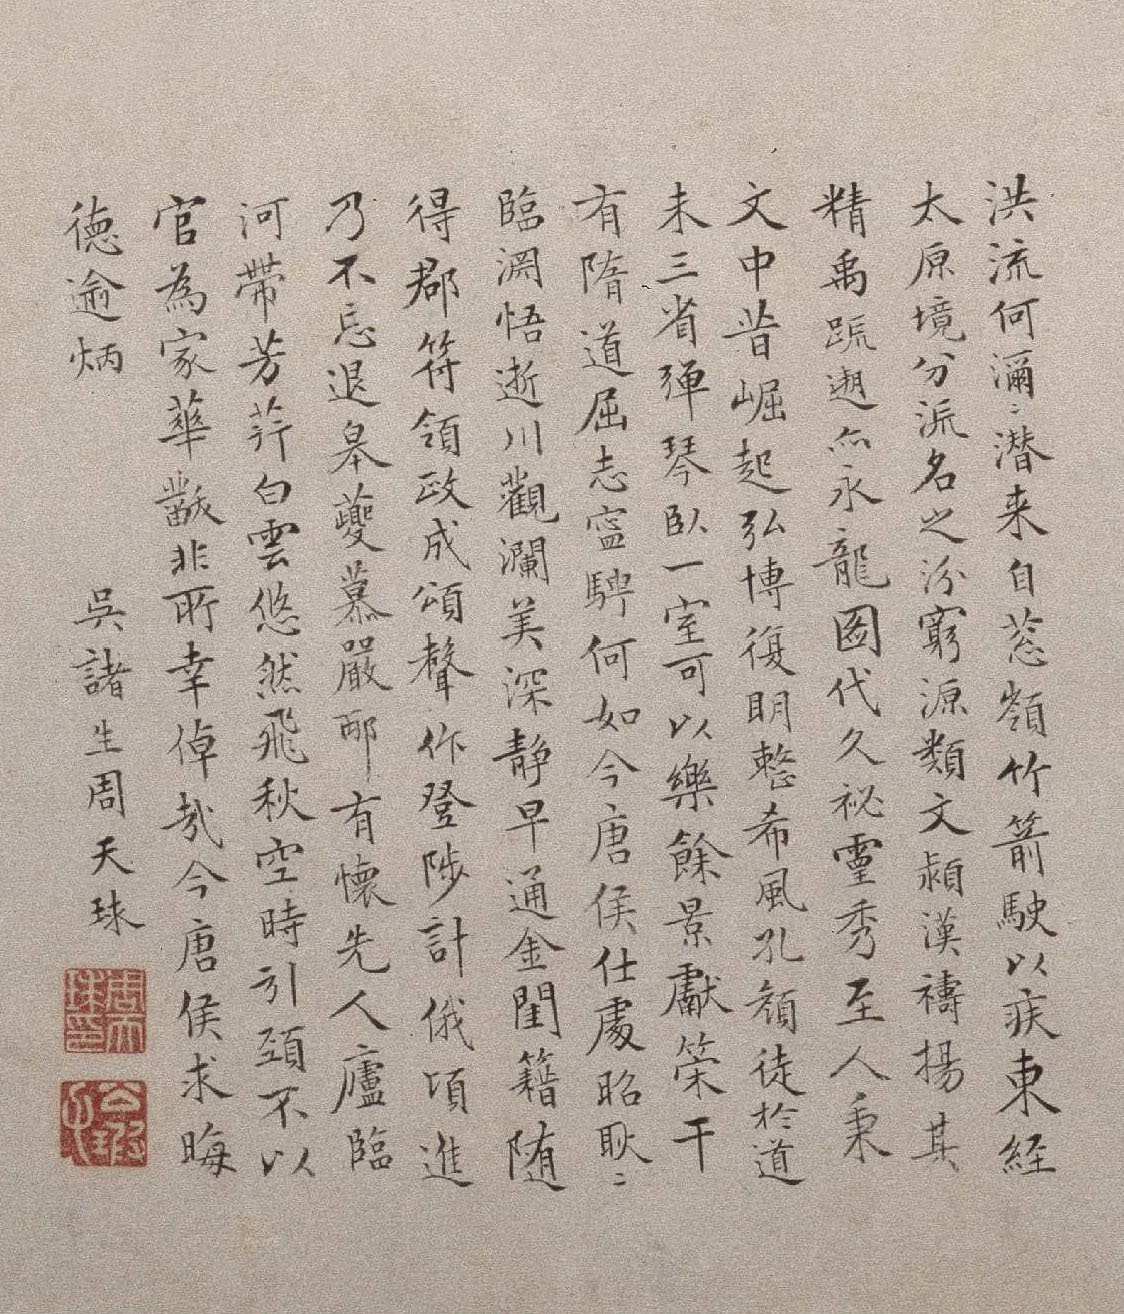 洪流何瀰〻潛来自蔥嶺竹箭駛以疾東経
太原境分派名之汾窮源類文潁漢禱揚其
精禹跡邈亦永龍圖代久祕靈秀至人秉
文中昔崛起弘博復明整希風孔顏徒於道
未三省彈琴臥一室可以樂餘景獻策干
有隋道屈志寧騁何如今唐侯仕處昭耿〻
臨淵悟逝川觀瀾美深靜早通金閨籍随
得郡符領政成頌聲作登陟計俄頃進
乃不忘退皋夔慕嚴邴有懷先人廬臨
河帶芳荇白雲悠然飛秋空時引頸不以
官為家華黻非所幸倬哉今唐侯求晦
德逾炳 吳諸生周天球
周天球印